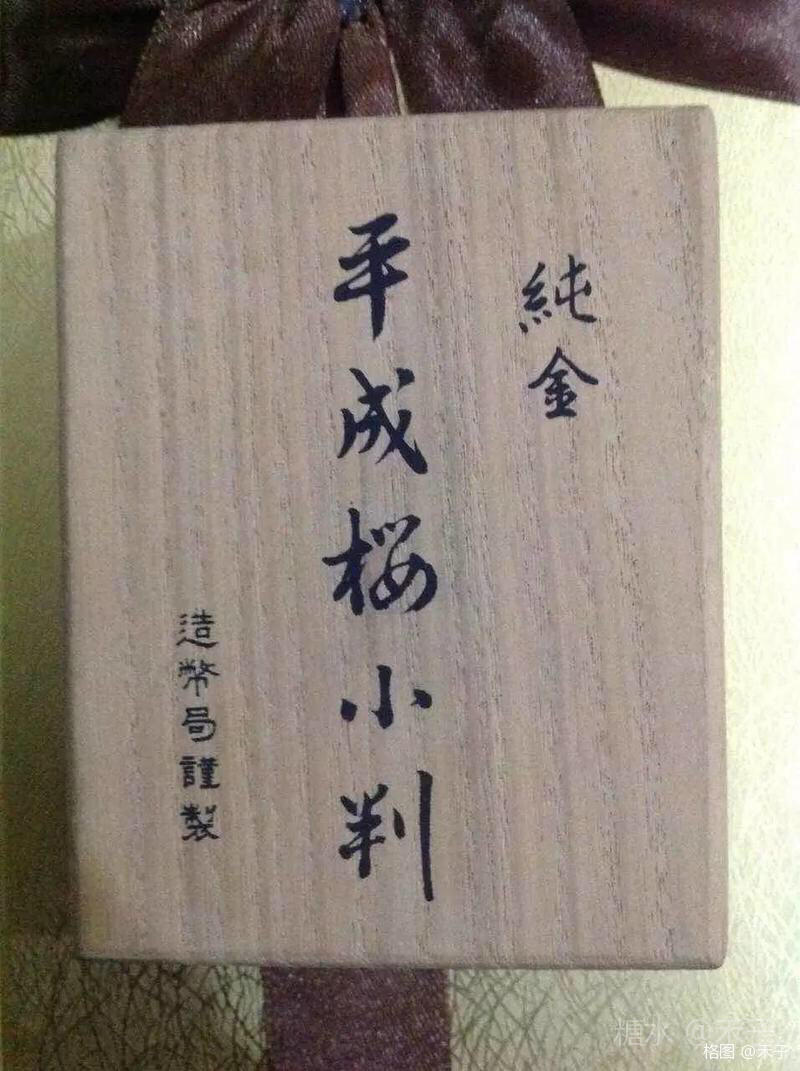 純金
平成桜小判
造幣局謹製
糖水 @
格图 @禾子